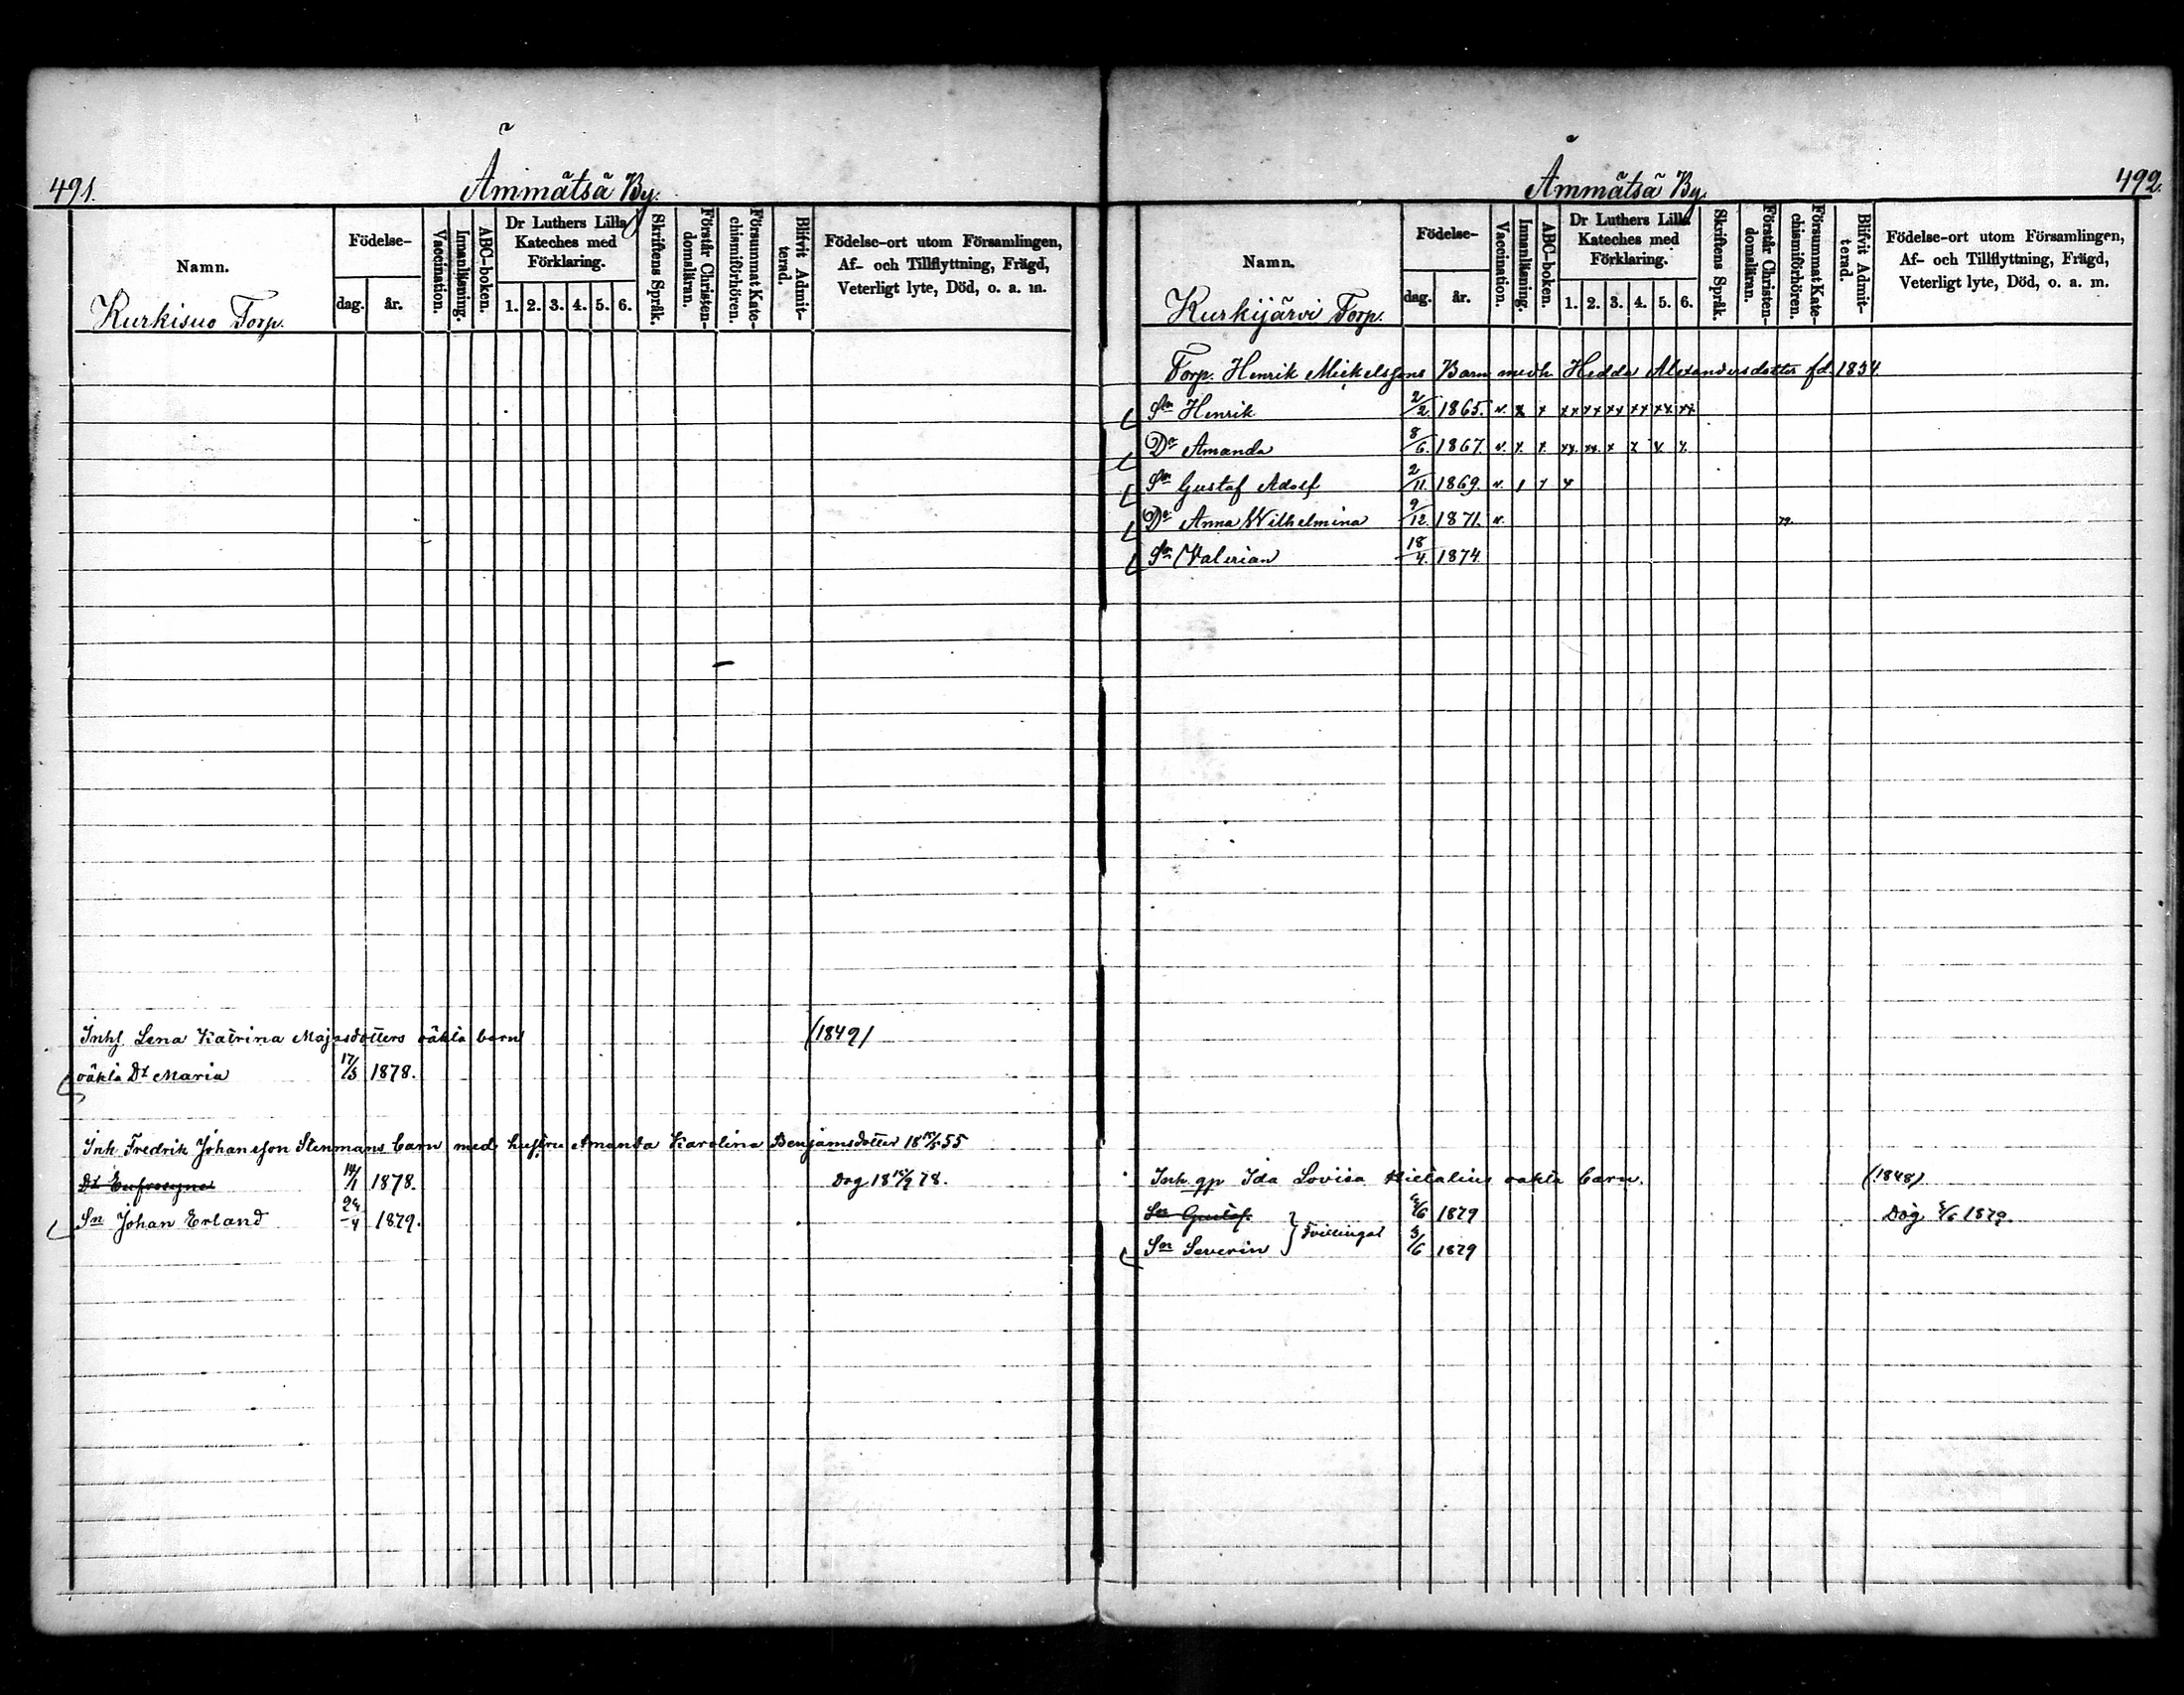 491.
Ämmätsä By.
Namn.
Födelse-
dag.
år.
Vaccination.
Innanläsning.
ABC-boken.
Dr Luthers Lilla
Kateches med
Förklaring.
1. 2. 3. 4. 5. 6.
Skriftens Språk.
Förstår Christen-
domsläran.
Försummat Kate-
chismiförhören.
Blifvit Admit-
terad.
Födelse-ort utom Församlingen,
Af- och Tillflyttning, Frägd,
Veterligt lyte, Död, o. a. m.
Kurkisuo Torp.
Inhs. Lena Katrina Majasdotters oäkta barn (1849)
oäkta Dt Maria 17/3 1878.
Inh. Fredrik Johansson Stenmans barn med hustru Amanda Karolina Benjamsdotter
Dt Eufrosyne 14/1 1878. Dog
Sn Johan Erland 24/4 1879.
492.
Ämmätsä By
Namn.
Födelse-
dag.
år.
Vaccination.
Innanläsning.
ABC-boken.
Dr Luthers Lilla
Kateches med
Förklaring.
1. 2. 3. 4. 5. 6.
Skriftens Språk.
Förstår Christen-
domsläran.
Försummat Kate-
chismiförhören.
Blifvit Admit-
terad.
Födelse-ort utom Församlingen,
Af- och Tillflyttning, Frägd,
Veterligt lyte, Död, o. a. m.
Kurkijärvi Torp.
Torp. Henrik Mickelssons Barn med h. Hedda Alexandersdotter fd. 1834
Sn Henrik 2/2 1865. v. x x xx xx xx xx xx xx
Dr Amanda 8/6. 1867. v. x. x. xx. xx. x x x. x.
Sn Gustaf Adolf 2/11 1869. v. 1 x x
Dr Anna Wilhelmina 9/12. 1871. v. 79.
Sn Valerian 18/4. 1874.
Inh. qp Ida Lovisa oakta barn. (1848)
Sn Gustaf 1879 Dog 1879.
Tvillingar
Sn Severin 1879